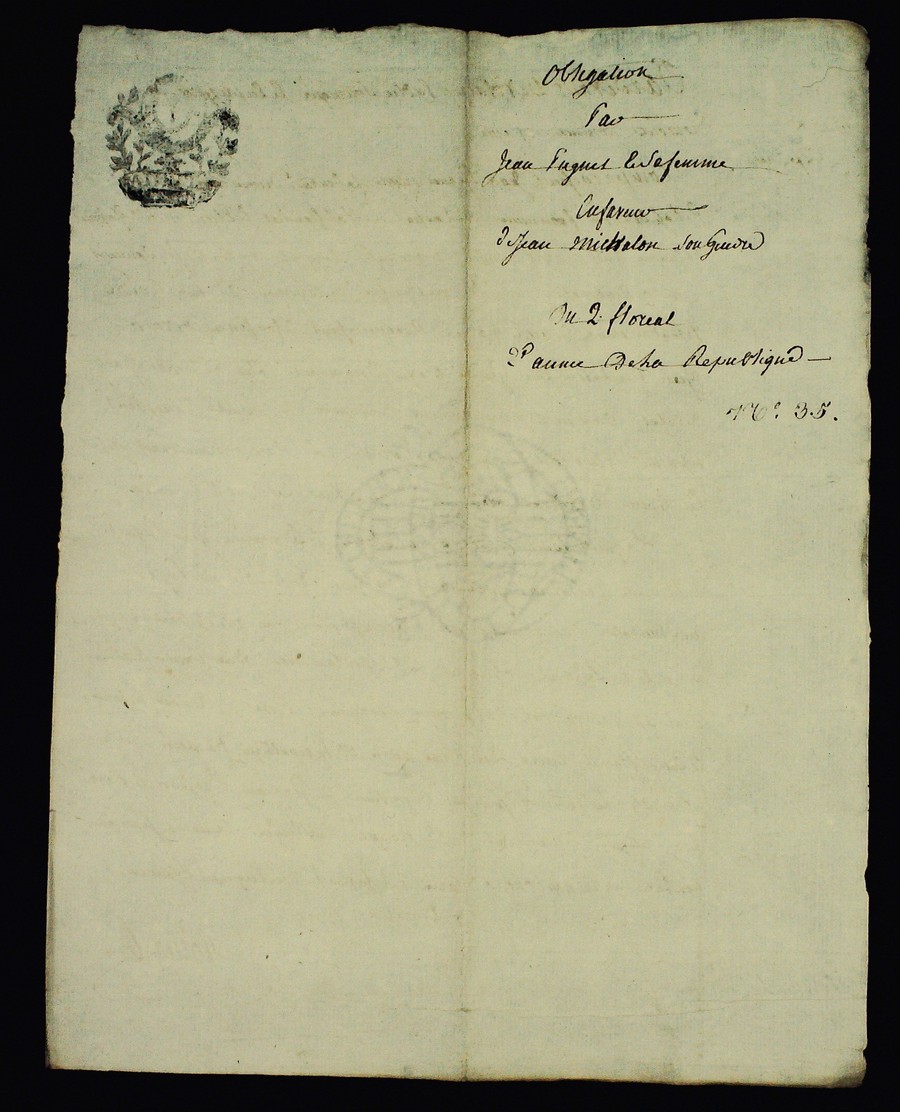 Obligation
Par
Jean Puguet & Sa femme
En faveur
de Jean Michalon Son Gendre
Du 2 floreal
2e année De La Republique
N° 35.